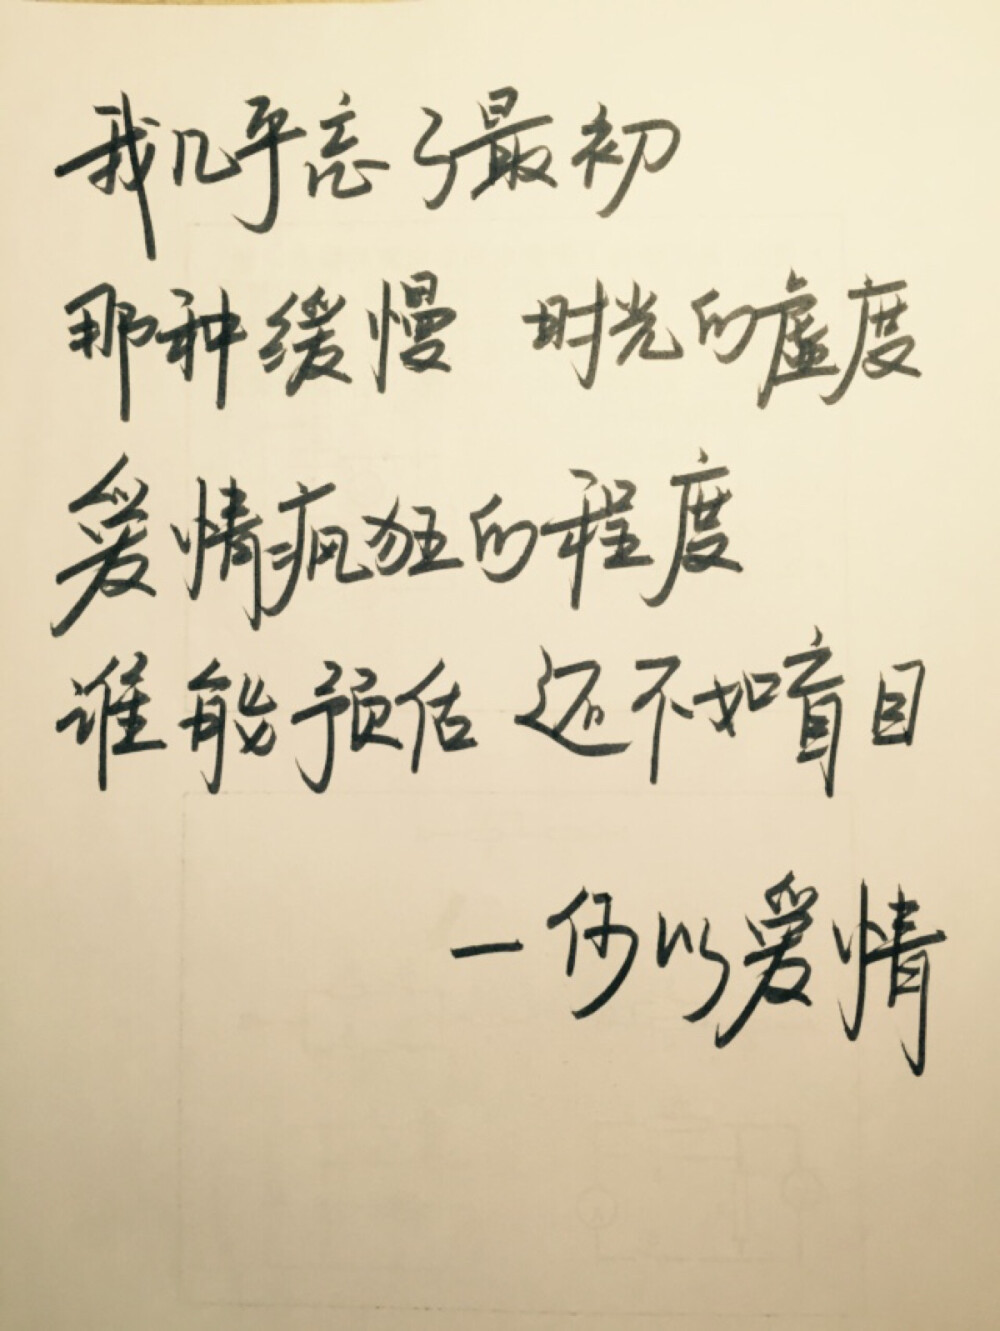 我几乎忘了最初
那种缓慢 时光的虚度
爱情疯狂的程度
谁能预估 还不如盲目
一何以爱情